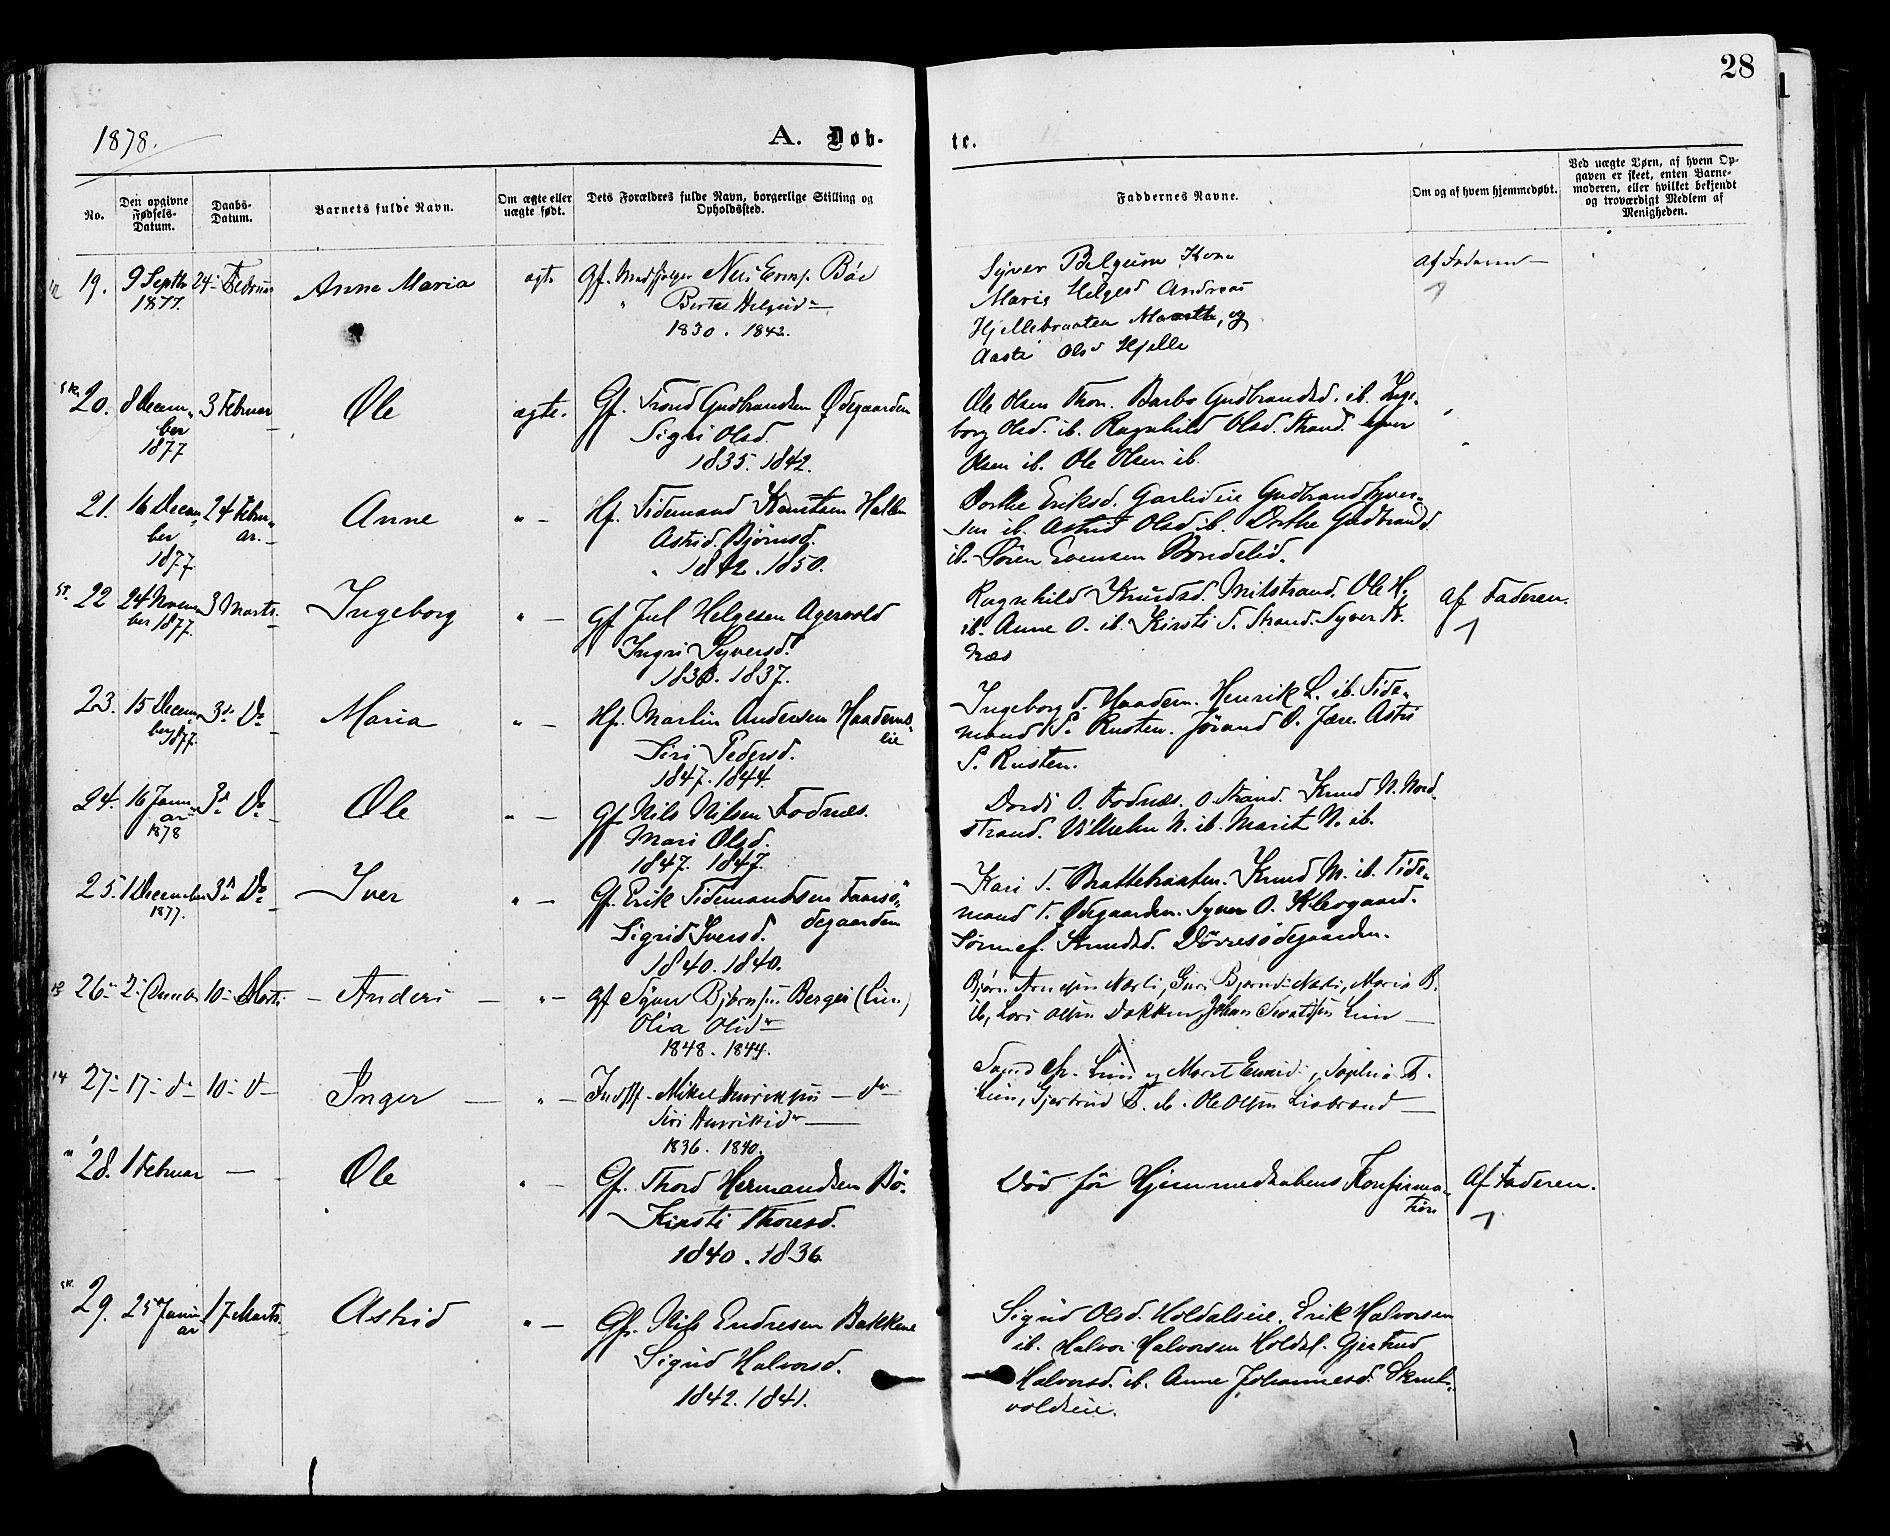 28
1878.
A. Døb-
te.
No.
Den opgivne Fødsels-Datum.
Daabs-Datum.
Barnets fulde Navn.
Om ægte eller uægte født.
Dets Forældres fulde Navn, borgerlige Stilling og Opholdssted.
Faddernes Navne.
Om og af hvem hjemmedøbt.
Ved uægte Børn, af hvem Op-
gaven er skeet, enten Barne-
moderen, eller hvilket bekjendt
og troværdigt Medlem af
Menigheden.
19. 9 Septbr 24- Februar Anne Maria ægte Gf. Bøe
1877.
1830. 1842.
Syver Kone
Marie Helgesd Andreas
Hjellebraaten Marthe, og
Olsd Hjelle
af Faderen
20. 8 Decem- 3 Februar Ole ægte. Gf. Trond Gudbrandsen Ødegaarden
ber
1877
Sigri Olsd.
1835. 1842.
Ole Olsen Thon. Barbo Gudbrandsd. ib. Inge-
borg Olsd. ib. Ragnhild Olsd. Strand. Syver
Olsen ib. Ole Olsen ib.
21. 16 Decem- 24 Febru- Anne " - Hf. Tidemand Knutsen
ber ar.
1877.
Astrid Bjørnsd.
1842. 1850.
Dorthe Eriksd. Garlideie Gudbrand Syver-
sen ib. Astrid Olsd. ib. Dorthe Gudbrand
ib. Søren Evensen Bondelid.
22 24 Novem- 3 Marts. Ingeborg " - Gf Juul Helgesen Agervold
ber 1877.
Ingri Syversd.
1837.
Ragnhild Knudsd. Midstrand. Ole H.
ib. Anne O. ib. Kirsti S. Strand. Syver K.
Næs
af Faderen.
23. 15 Decem- 3d Do Maria " - Hf. Martin Andersen Haadems-
ber 1877. eie
Siri Pedersd.
1847. 1844.
Ingeborg T. Haadem. Henrik L. ib. Tide-
mand S. Rusten. Jørand O. Jære. Astri
S. Rusten.
24. 16 Janu- 3d Do Ole " - Gf Nils Nilsen Fodnæs.
ar
1878
Mari Olsd.
1847. 1847.
Dordi O. Fodnæs. O. Strand. Knud N. Nord-
strand. Vilhelm N. ib. Marit N. ib.
25. 1 December 3d Do Iver " - Gf. Erik Tidemandsen
1877. degaarden
Sigrid Iversd.
1840. 1840.
Kari T. Brattebraaten. Knud M. ib. Tide-
mand T. Ødegaarden. Syver O. Klevgaard.
Knudsd. Dörresödegaarden.
26 2 Decemb 10 Marts - Anders - " - Gf Syver Bjørnsen Berger (Lien)
Olia Olsd
1848. 1844.
Bjørn Arnesen Nærli, Guri Bjørnsd Maria B.
ib, Olsen Dokken, Johan Lien
27 17 do 10 do Inger - " - Indst. Mikel Henriksen - do
Siri Henriksd
1836. 1840.
Lien og Marit Sophie T.
Lien, Gjertrud T. ib. Ole Olsen
28. 1 Februar - Ole " - Gf. Thord Hermandsen Bö.
Kirsti Thoresd.
1840. 1836
Död för Hjemmedaabens Konfirma-
tion
Af Faderen.
29. 25 Janu- 17 Marts Astrid " - Gf. Nils Endresen Bakkene
ar
Sigrid Halvorsd.
1842. 1841.
Sigrid Olsd. Holdalseie. Erik Halvorsen
ib. Halvor Halvorsen Holdal. Gjertrud
Halvorsd. ib. Anne Johannesd. Skrut-
voldseie.